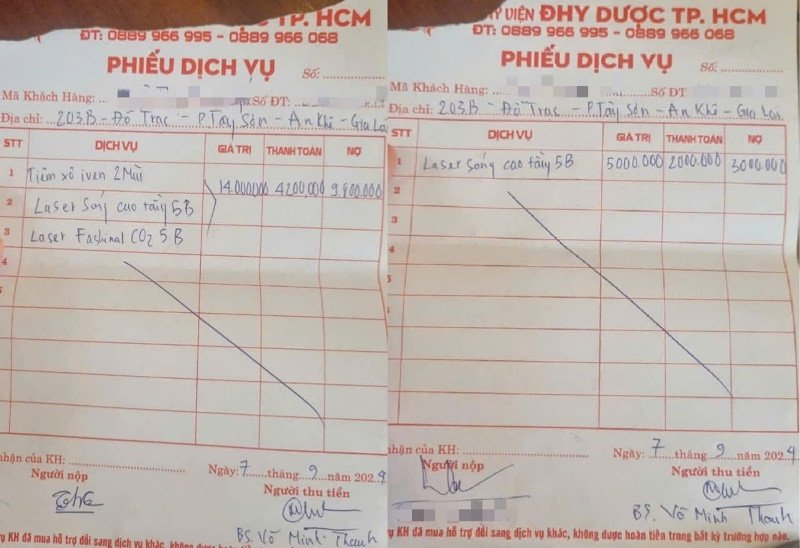 ĐHY DƯỢC TP. HCM
ĐT: 0889 966 995 - 0889 966 068
PHIẾU DỊCH VỤ
Số:
Mã Khách Hàng:
Số ĐT:
Địa chỉ: 203B - Đỗ Trạc - P. Tây Sơn - An Khê - Gia Lai
STT DỊCH VỤ GIÁ TRỊ THANH TOÁN NỢ
1 Tiêm 2 Mũi 14.000.000 4200.000 9800.000
2 Laser Sóng cao tầng 5B
3 Laser CO2 5B
4
nhận của KH:
Ngày: 7 tháng 9 năm 2024
Người nộp
Người thu tiền
BS. Võ Minh Thanh
vụ KH đã mua hỗ trợ đổi sang dịch vụ khác, không được hoàn tiền trong
VIỆN ĐHY DƯỢC TP. HCM
ĐT: 0889 966 995 - 0889 966 068
PHIẾU DỊCH VỤ
Số:
Mã Khách Hàng:
Số ĐT:
Địa chỉ: 203B - Đỗ Trạc - P. Tây Sơn - An Khê - Gia Lai
STT DỊCH VỤ GIÁ TRỊ THANH TOÁN NỢ
1 Laser sóng cao tầng 5B 5000.000 2000.000 3000.000
2
3
4
5
nhận của KH:
Ngày: 7 tháng 9 năm 2024
Người nộp
Người thu tiền
BS. Võ Minh Thanh
vụ KH đã mua hỗ trợ đổi sang dịch vụ khác, không được hoàn tiền trong bất kỳ trường hợp nào.